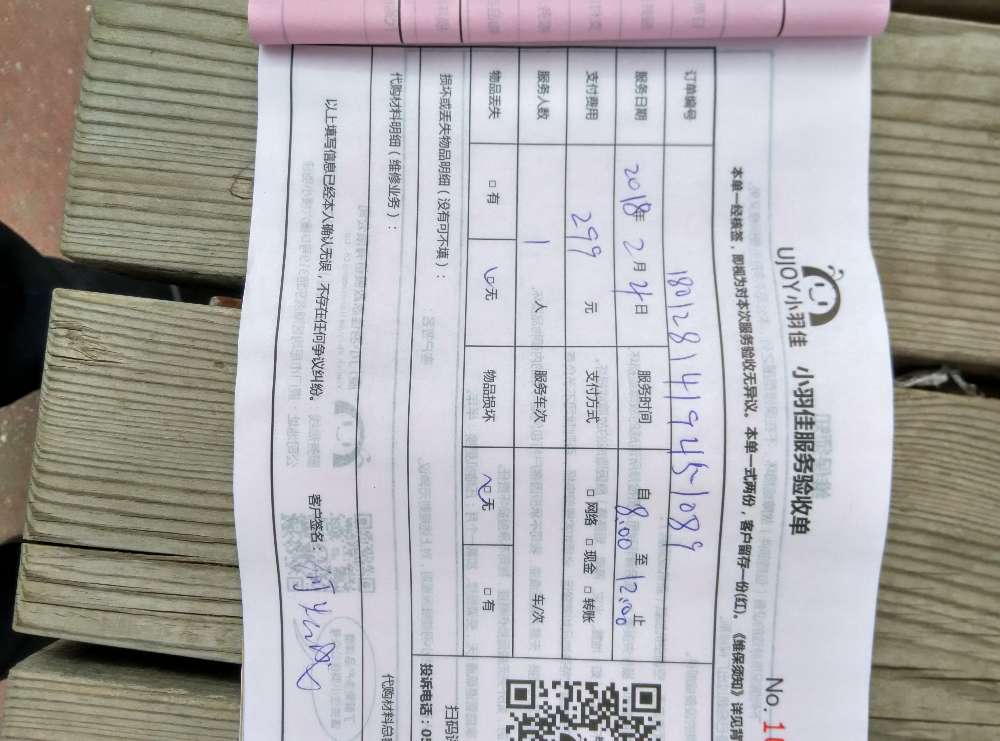 UJOY小羽佳 小羽佳服务验收单
No. 1
本单一经核签，即视为对本次服务验收无异议。本单一式两份，客户留存一份(红)。《维保须知》详见背
订单编号 1801281419451089
服务日期 2018年 2月 4日 服务时间 自 8:00 至 12:00 止
支付费用 299 元 支付方式 □ 网络 □ 现金 □ 转账
服务人数 1 人 服务车次 车/次
物品丢失 □ 有 □ 无 物品损坏 □ 无 □ 有
损坏或丢失物品明细（没有可不填）：
扫码
投诉电话：05
代购材料明细（维修业务）：
代购材料总
以上填写信息已经本人确认无误，不存在任何争议纠纷。 客户签名：